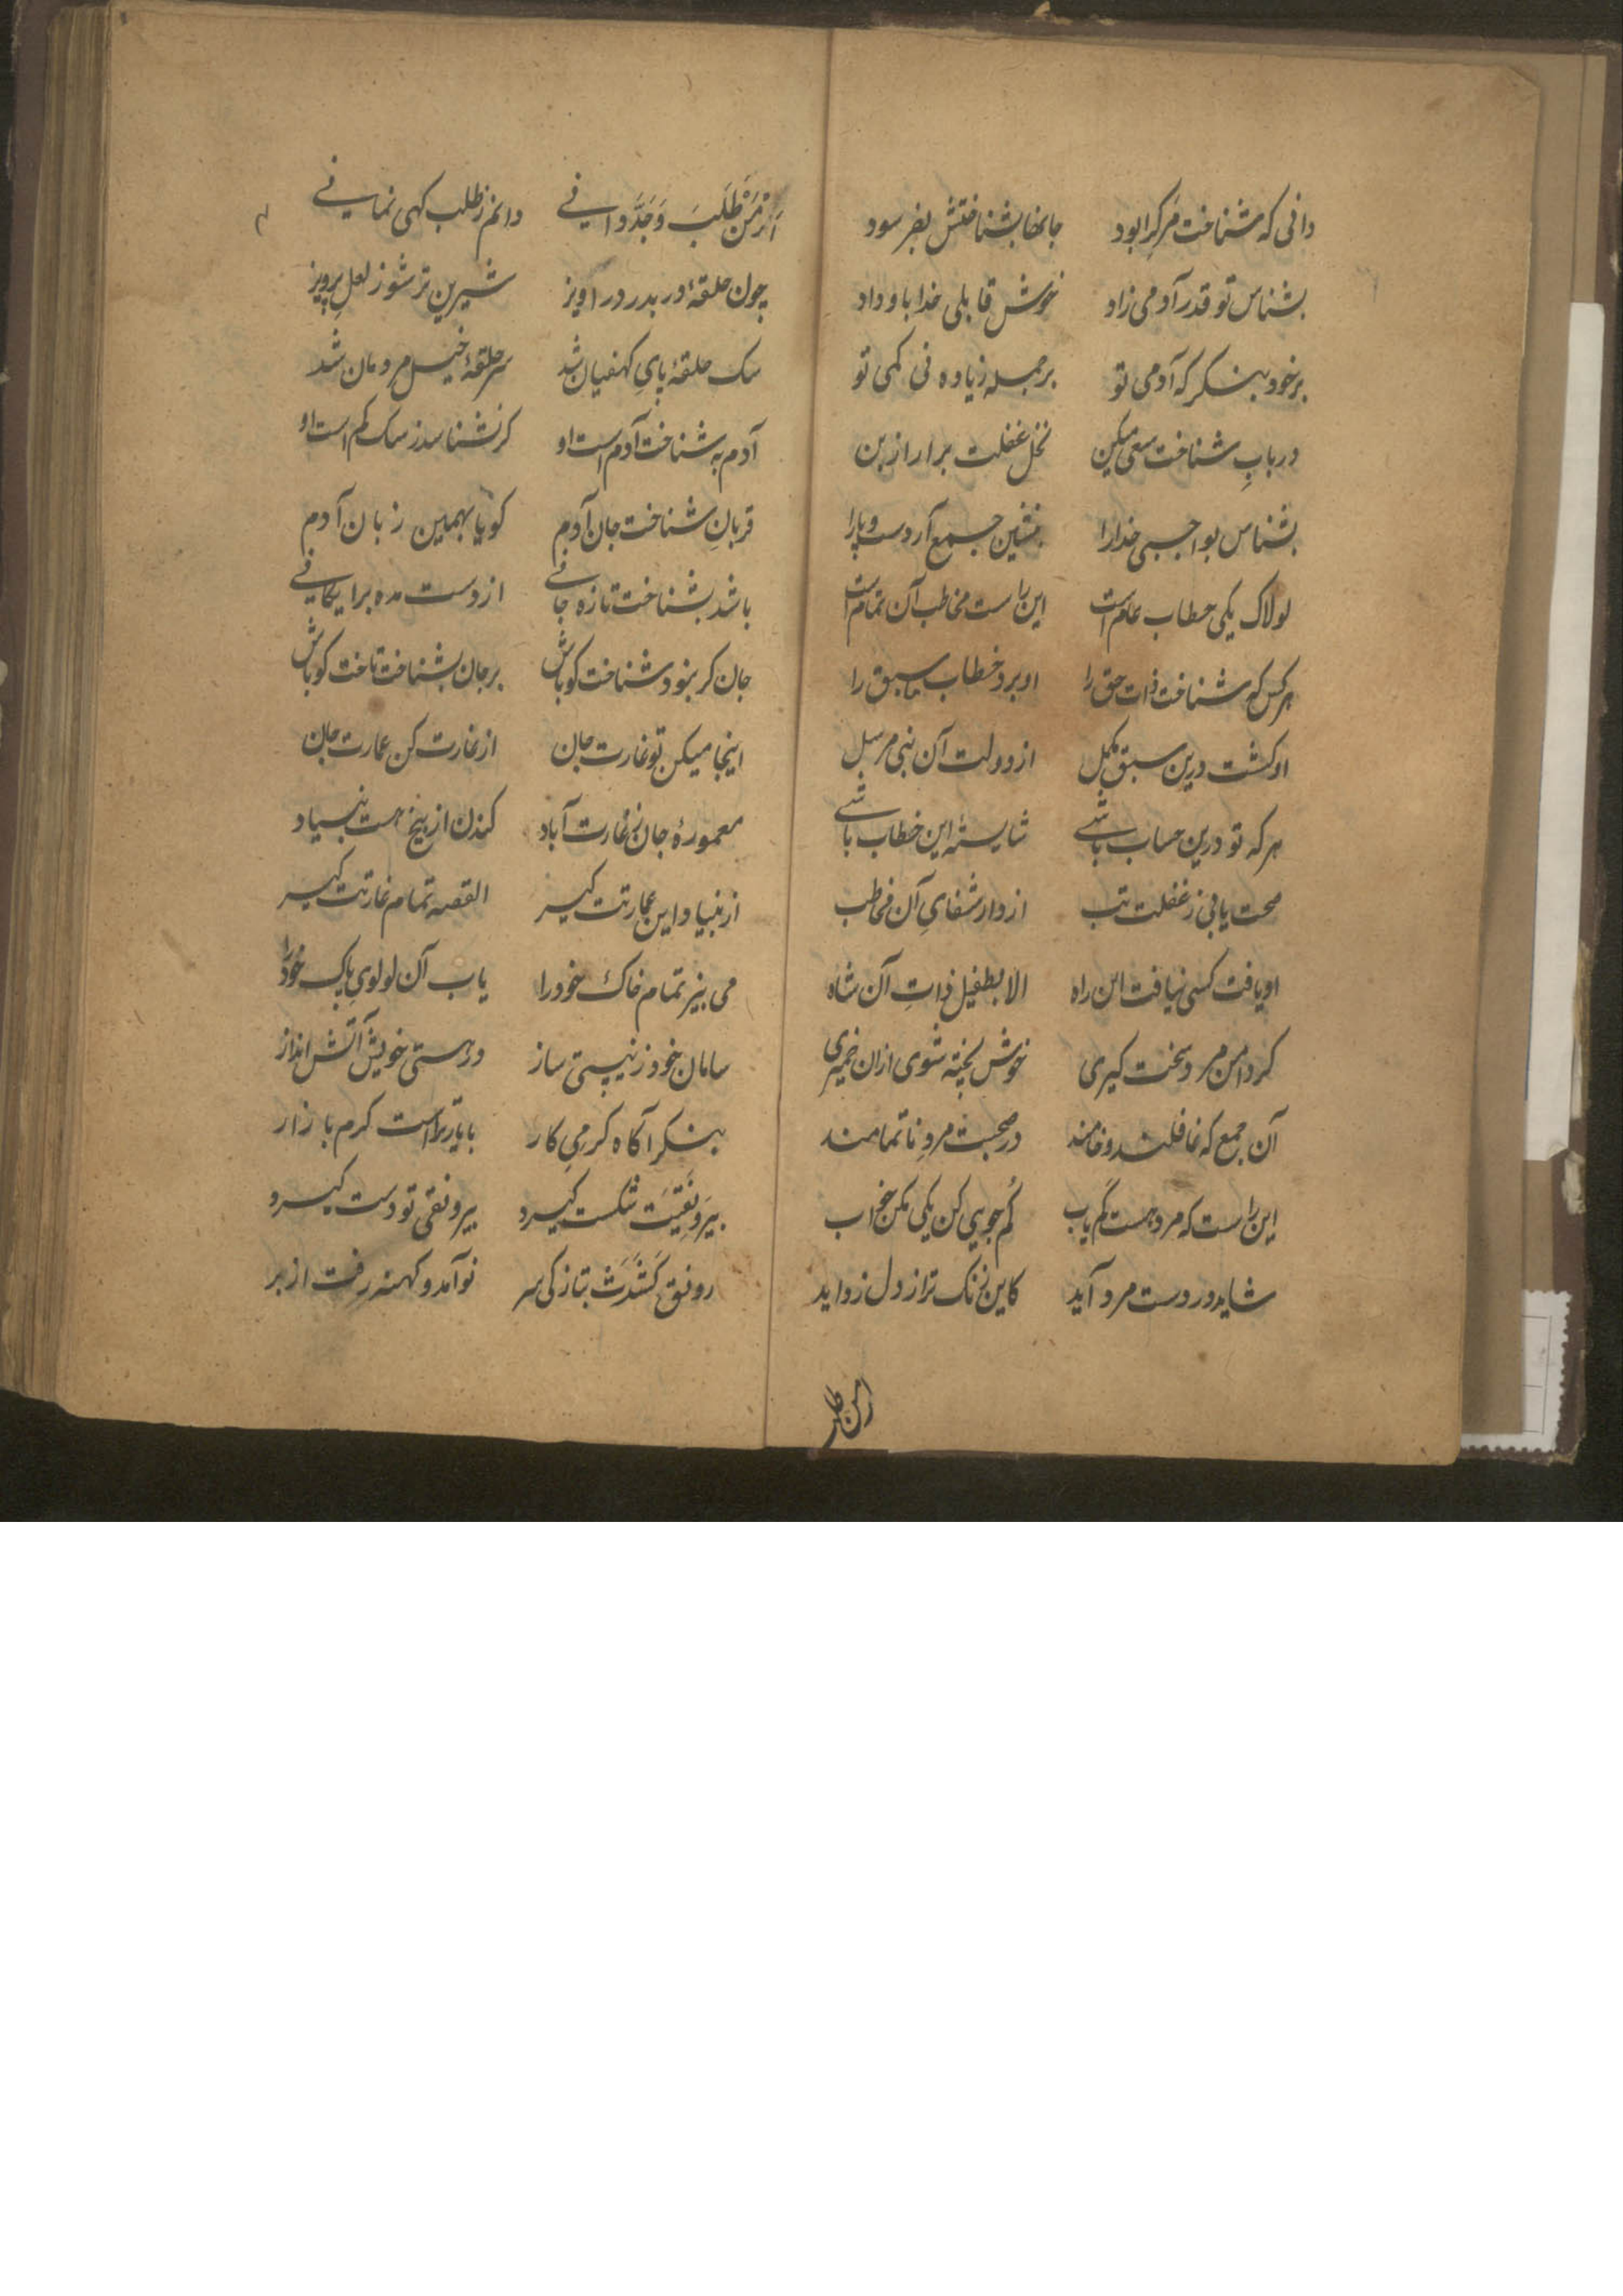 دانی که شناخت مر کرا بود جانها بشناختش بفرسود
بشناس تو قدر آدمی زاد خوش قابلی خدا باو داد
بر خود بنکر که آدمی تو بر جمله زیاده نی کمی تو
در بابِ شناخت سعی میکن نخل غفلت برار از بن
بشناس بواجبی خدا را بنشین جمع آر دست و پا را
لولاک یکی خطاب عام است این راست مخاطب آن تمام است
هر کس که شناخت ذات حق را او برد خطاب ما سبق را
او کشت درین سبق مکمل از دولت آن نبی مرسل
هر که تو درین حساب باشے شایستهٔ این خطاب باشے
صحت یابی ز غفلت تب از دار شفایِ آن مخاطب
او یافت کسی نیافت این راه الا بطفیل ذاتِ آن شاه
کر دامن مرد سخت کیری خوش پخته شوی ازان خمیری
آن جمع که غافلند و خامند در صحبت مردِ ناتمامند
این راست که مرد هست کم یاب کُم جویی کن یکی مکن خواب
شاید در دست مرد آید کاین زنک ترا ز دل زداید
از من طلب
اَز مَنْ طَلَبَ وَجَدَّ دانے دانم ز طلب کهی نمانے
چون حلقهٔ در بدر در اویز شیرین تر شو ز لعلِ پرویز
سک حلقهٔ پایِ کهفیان شد سر حلقهٔ خیل مردمان شد
آدم به شناخت آدم است او کر نشناسد ز سک کم است او
قربانِ شناخت جان آدم کویا بهمین زبان آدم
باشد بشناخت تازه جانے از دست مده برایکانے
جان کر بنود شناخت کو باش بر جان بشناخت تاخت کو باش
اینجا میکن تو غارت جان از غارت کن عمارت جان
معمورهٔ جان ز غارت آباد کندن از بیخ هست بنیاد
از بنیاد این عمارتت کیر القصه تمام غارتت کیر
می بیز تمام خاک خود را یاب آن لولویِ پاک خود را
سامان خود ز نیستی ساز در هستی خویش آتش انداز
بنکر آکاه کرمیِ کار با یار تراست کرم بازار
بیرَونَقِیَتْ شکست کیرد بیرونقی تو دست کیرد
رونق کَشَدَتْ بتازکی سر نو آمد و کهنه رفت از بر